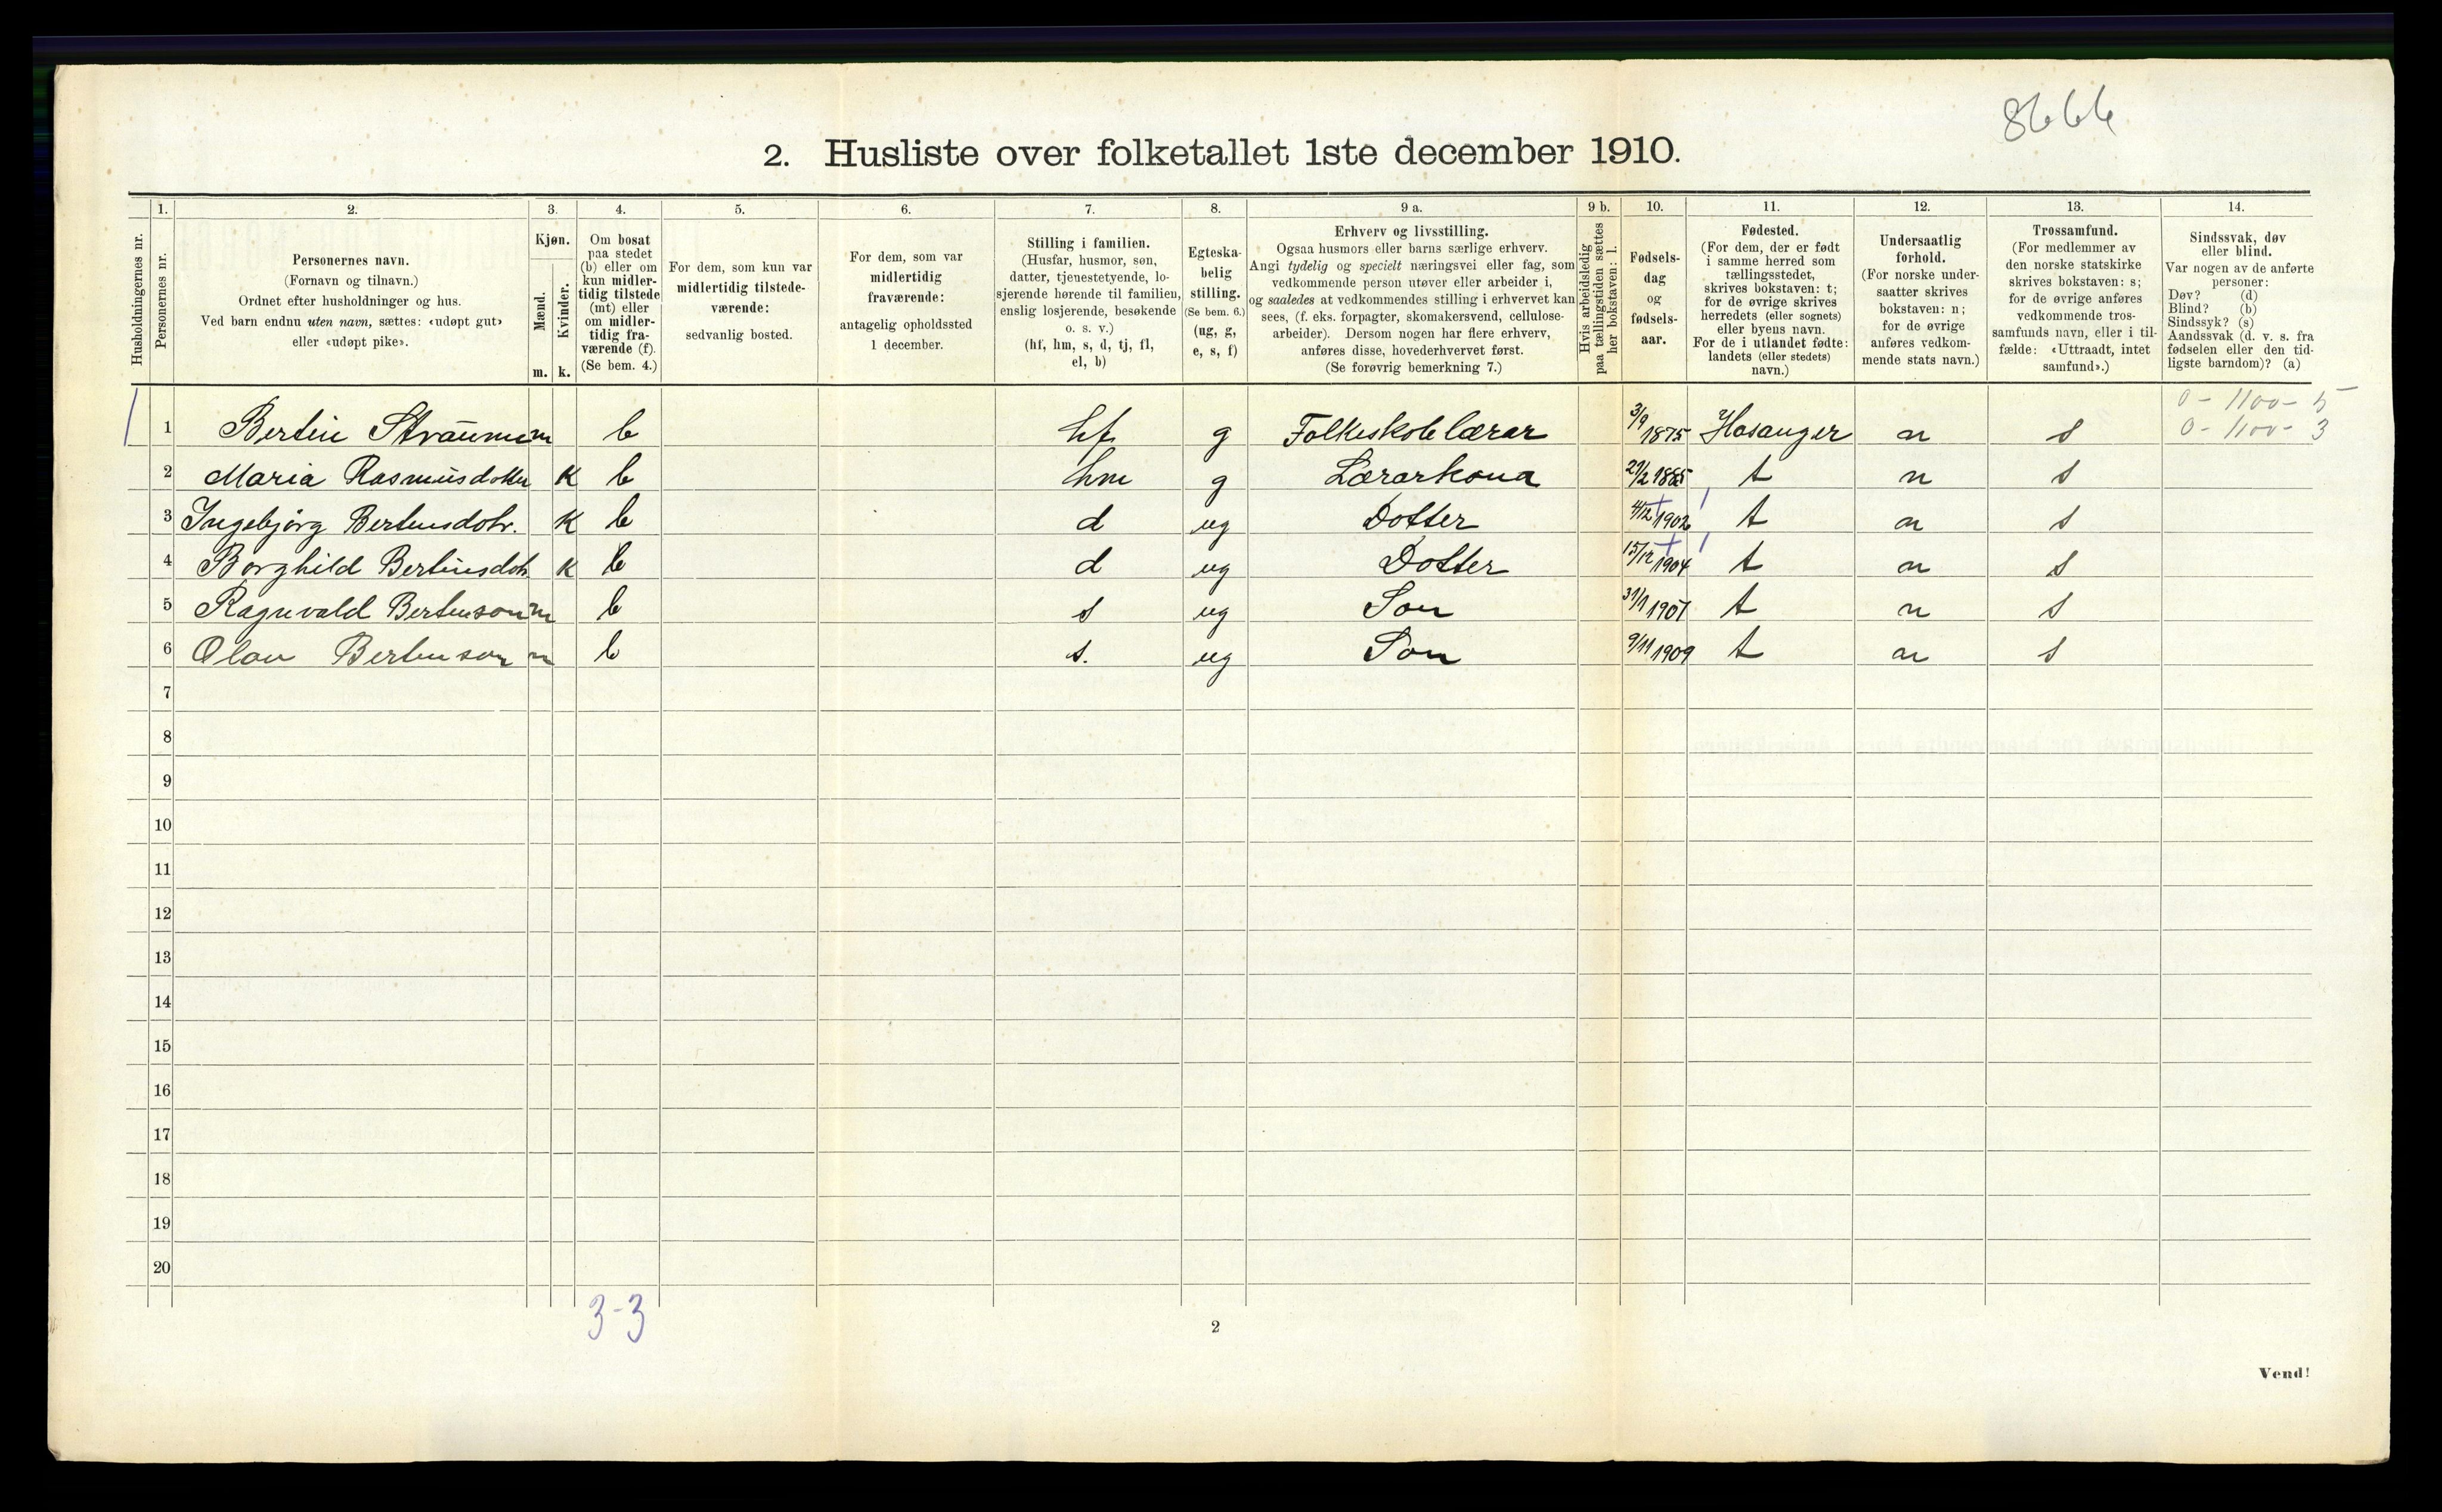 8666
2. Husliste over folketallet 1ste december 1910.
1. 2. 3. 4. 5. 6. 7. 8. 9 a. 9 b. 10. 11. 12. 13. 14.
Husholdningernes nr.
Personernes nr.
Personernes navn.
(Fornavn og tilnavn.)
Ordnet efter husholdninger og hus.
Ved barn endnu uten navn, sættes: «udøpt gut»
eller «udøpt pike».
Kjøn.
Mænd.
Kvinder.
m. k.
Om bosat
paa stedet
(b) eller om
kun midler-
tidig tilstede
(mt) eller
om midler-
tidig fra-
værende (f).
(Se bem. 4.)
For dem, som kun var
midlertidig tilstede-
værende:
sedvanlig bosted.
For dem, som var
midlertidig
fraværende:
antagelig opholdssted
1 december.
Stilling i familien.
(Husfar, husmor, søn,
datter, tjenestetyende, lo-
sjerende hørende til familien,
enslig losjerende, besøkende
o. s. v.)
(hf, hm, s, d, tj, fl,
el, b)
Egteska-
belig
stilling.
(Se bem. 6.)
(ug, g,
e, s, f)
Erhverv og livsstilling.
Ogsaa husmors eller barns særlige erhverv.
Angi tydelig og specielt næringsvei eller fag, som
vedkommende person utøver eller arbeider i,
og saaledes at vedkommendes stilling i erhvervet kan
sees, (f. eks. forpagter, skomakersvend, cellulose-
arbeider). Dersom nogen har flere erhverv,
anføres disse, hovederhvervet først.
(Se forøvrig bemerkning 7.)
Hvis arbeidsledig
paa tællingstiden sættes
her bokstaven: l.
Fødsels-
dag
og
fødsels-
aar.
Fødested.
(For dem, der er født
i samme herred som
tællingsstedet,
skrives bokstaven: t;
for de øvrige skrives
herredets (eller sognets)
eller byens navn.
For de i utlandet fødte:
landets (eller stedets)
navn.)
Undersaatlig
forhold.
(For norske under-
saatter skrives
bokstaven: n;
for de øvrige
anføres vedkom-
mende stats navn.)
Trossamfund.
(For medlemmer av
den norske statskirke
skrives bokstaven: s;
for de øvrige anføres
vedkommende tros-
samfunds navn, eller i til-
fælde: «Uttraadt, intet
samfund».)
Sindssvak, døv
eller blind.
Var nogen av de anførte
personer:
Døv? (d)
Blind? (b)
Sindssyk? (s)
Aandssvak (d. v. s. fra
fødselen eller den tid-
ligste barndom)? (a)
0 - 1100 - 5
0 - 1100 - 3
1 Bertin Straume m b hf g Folkeskolelærar 3/9 1875 Hosanger n s
2 Maria Rasmusdotter k b hm g Lærarkona 1885 t n s
3 Ingebjørg Bertinsdotr. k b d ug Dotter 4/12 1902 t n s
4 Borghild Bertinsdotr k b d ug Dotter 15/12 1904 t n s
5 Ragnvald Bertinson m b s ug Son 31/1 1907 t n s
6 Olav Bertinson m b s. ug Son 9/11 1909 t n s
7
8
9
10
11
12
13
14
15
16
17
18
19
20
3-3
2
Vend!